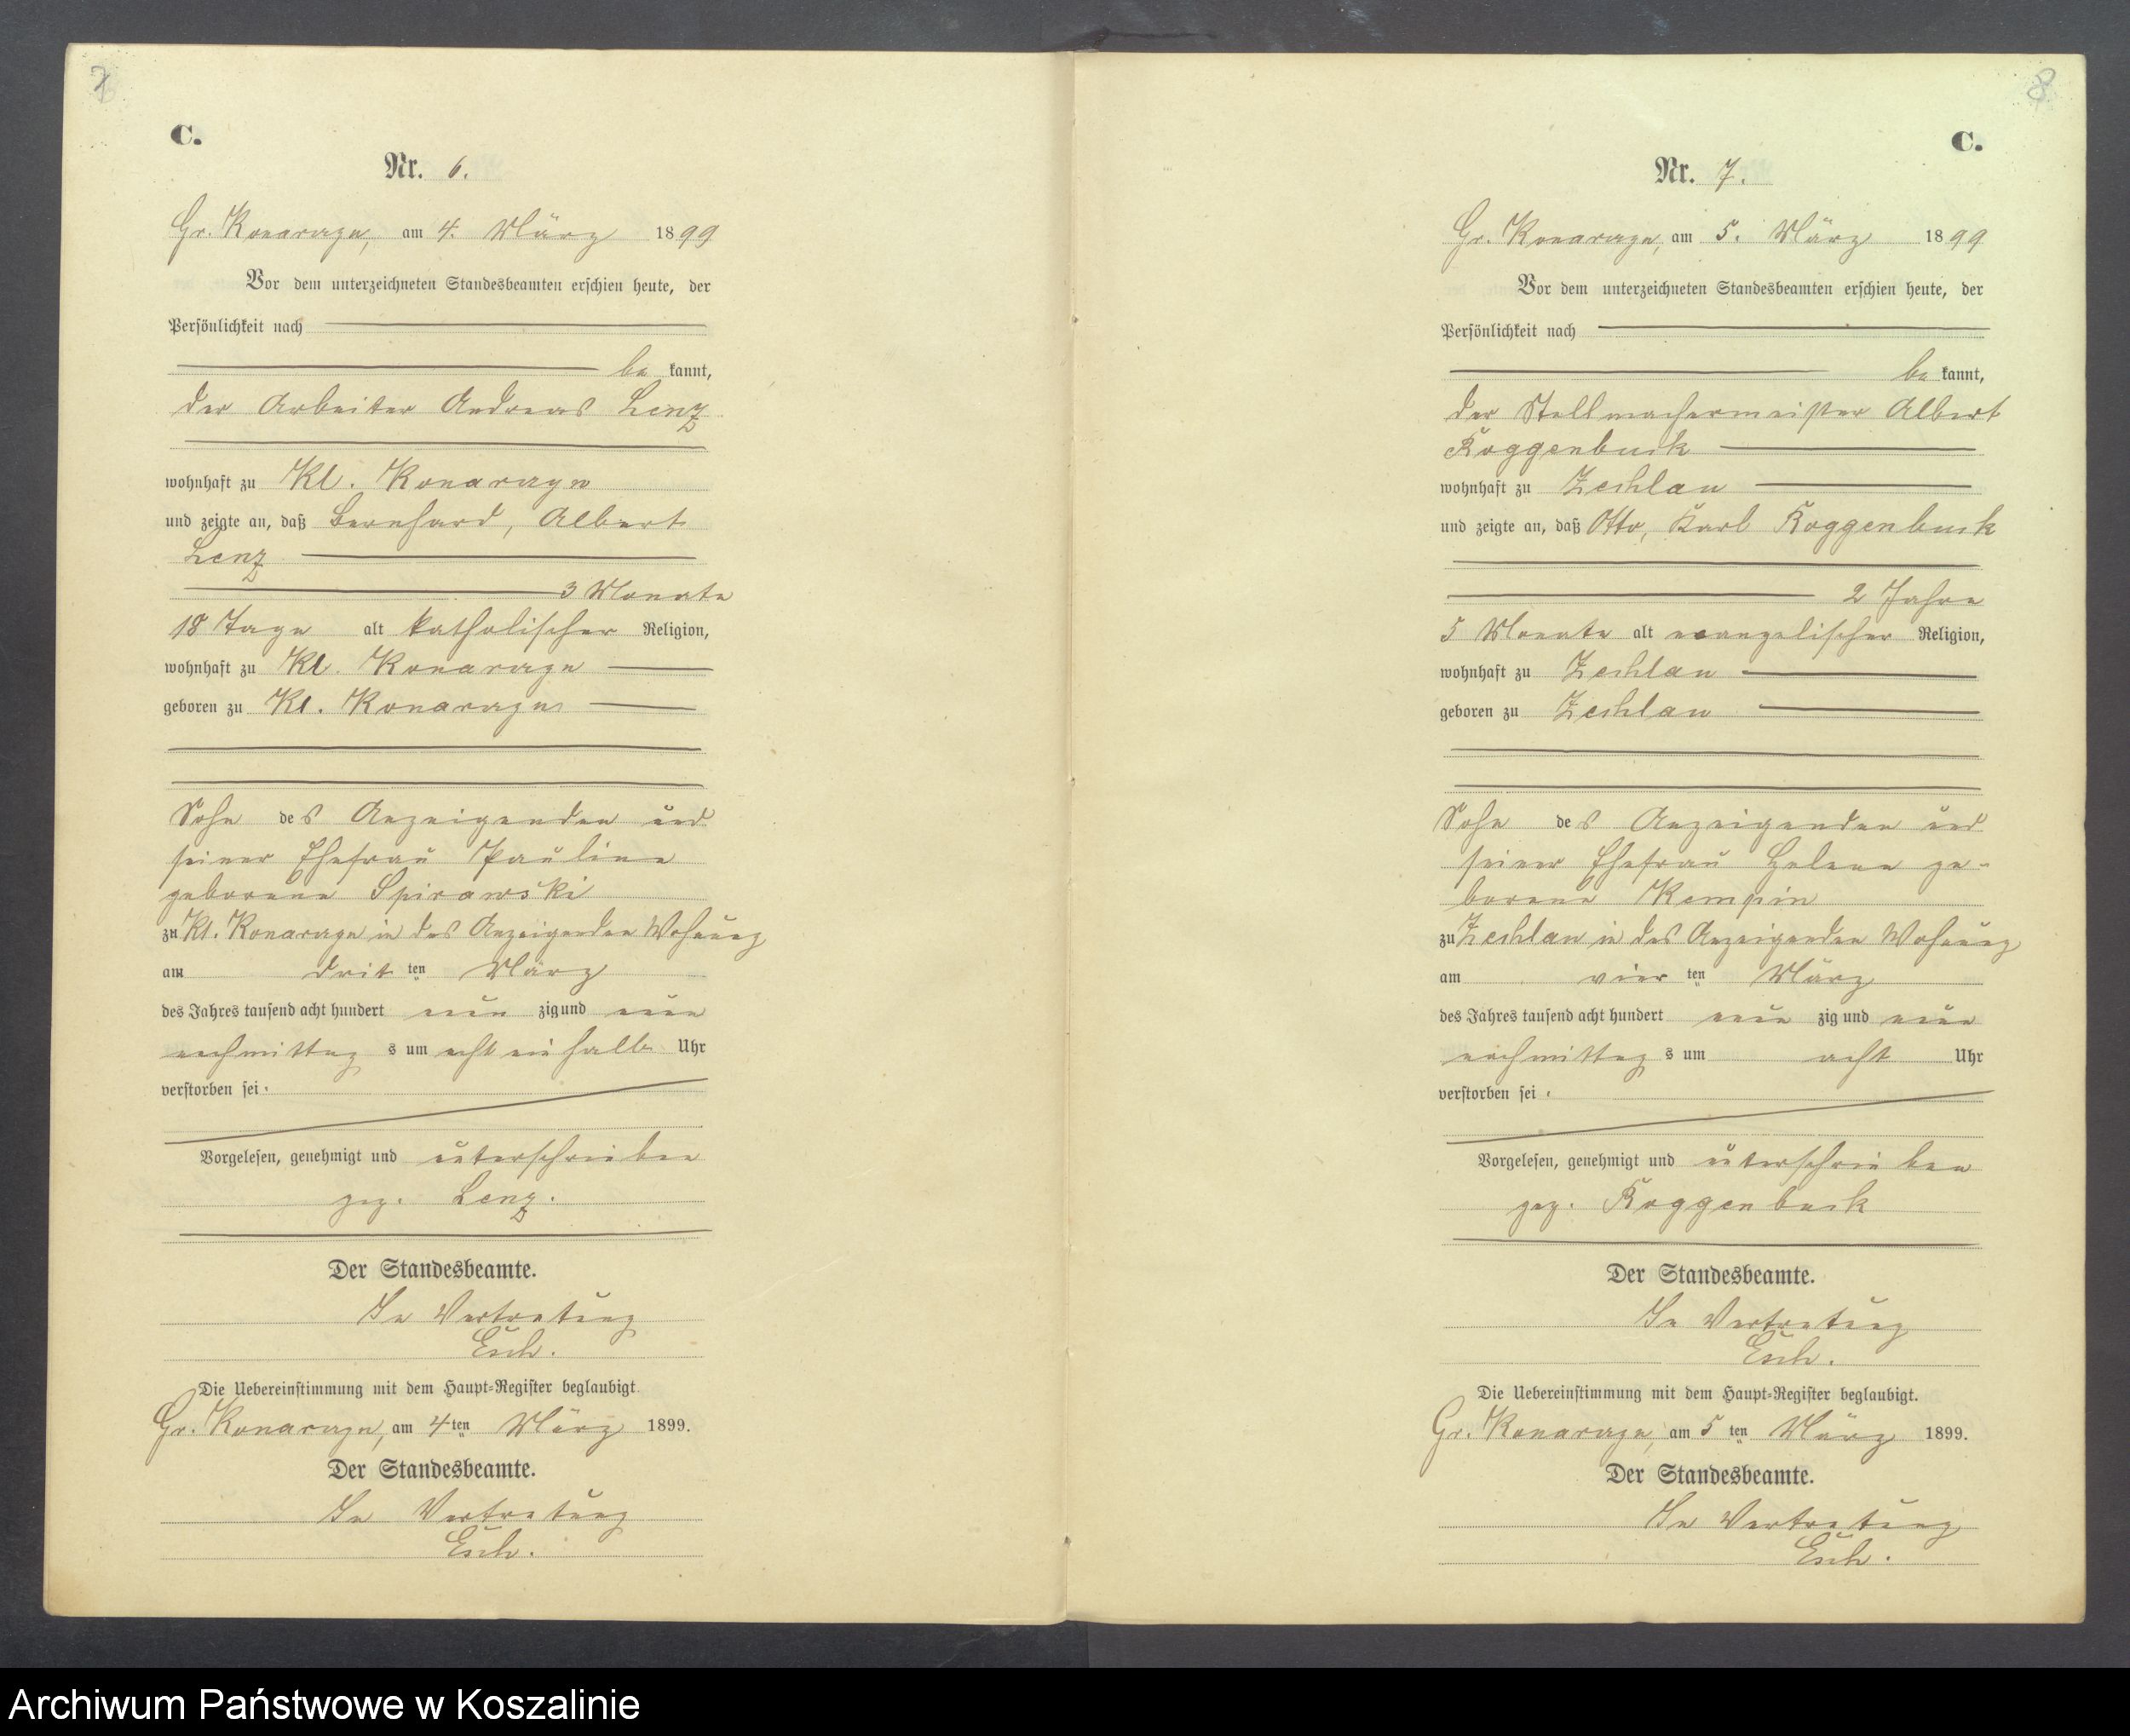 7
C.
Nr. 6.
Gr. Konarzyn, am 4. März 1899
Vor dem unterzeichneten Standesbeamten erschien heute, der
Persönlichkeit nach
be kannt,
der Arbeiter Andreas Lenz
wohnhaft zu Kl. Konarzyn
und zeigte an, daß Bernhard, Albert
Lenz
3 Monate
18 Tage alt katholischer Religion,
wohnhaft zu Kl. Konarzyn
geboren zu Kl. Konarzyn
Sohn des Anzeigenden und
seiner Ehefrau Pauline
geborene Spirawski
zu Kl. Konarzyn in des Anzeigenden Wohnung
am drit ten März
des Jahres tausend acht hundert neun zig und neun
nachmittag s um acht ein halb Uhr
verstorben sei.
Vorgelesen, genehmigt und unterschrieben
gez. Lenz.
Der Standesbeamte.
In Vertretung
Esch.
Die Uebereinstimmung mit dem Haupt-Register beglaubigt
Gr. Konarzyn, am 4ten März 1899.
Der Standesbeamte.
In Vertretung
Esch.
8
C.
Nr. 7.
Gr. Konarzyn, am 5. März 1899
Vor dem unterzeichneten Standesbeamten erschien heute, der
Persönlichkeit nach
be kannt,
der Stellmachermeister Albert
Roggenbuck
wohnhaft zu Zechlau
und zeigte an, daß Otto, Karl Roggenbuck
2 Jahre
5 Monate alt evangelischer Religion,
wohnhaft zu Zechlau
geboren zu Zechlau
Sohn des Anzeigenden und
seiner Ehefrau Helene ge-
borene Kempin
zu Zechlau in des Anzeigenden Wohnung
am vier ten März
des Jahres tausend acht hundert neun zig und neun
nachmittag s um acht Uhr
verstorben sei.
Vorgelesen, genehmigt und unterschrieben
gez. Roggenbuck
Der Standesbeamte.
In Vertretung
Esch.
Die Uebereinstimmung mit dem Haupt-Register beglaubigt.
Gr. Konarzyn, am 5 ten März 1899.
Der Standesbeamte.
In Vertretung
Esch.
Archiwum Państwowe w Koszalinie